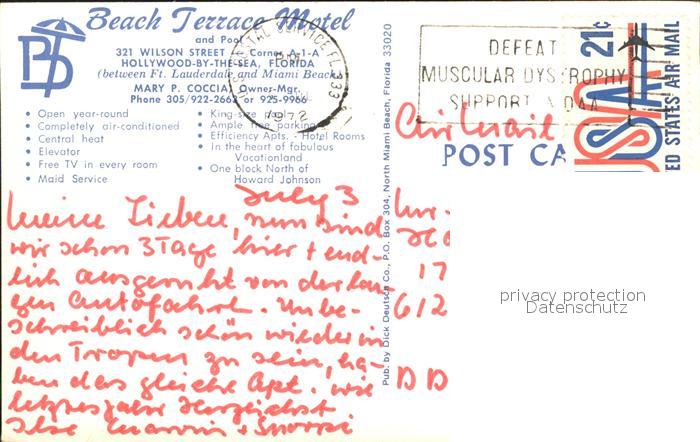 Beach Terrace Motel
and Pool
321 WILSON STREET — Corner A-1-A
HOLLYWOOD-BY-THE-SEA, FLORIDA
(between Ft. Lauderdale and Miami Beach)
MARY P. COCCIA, Owner-Mgr.
Phone 305/922-266 or 925-9966
• Open year-round
• Completely air-conditioned
• Central heat
• Elevator
• Free TV in every room
• Maid Service
• King-size
• Ample free parking
• Efficiency Apts. - Hotel Rooms
• In the heart of fabulous
Vacationland
• One block North of
Howard Johnson
POSTAL SERVICE FL 333
1972
DEFEAT
MUSCULAR DYSTROPHY
SUPPORT MDAA
21c
USA
UNITED STATES AIR MAIL
Air Mail
POST CA
Pub. by Dick Deutsch Co., P.O. Box 304, North Miami Beach, Florida 33020
July 3
Meine Lieben, nun sind
wir schon 3 Tage hier + end-
lich ausgeruht von der lan-
gen Autofahrt. Unbe-
schreiblich schön wieder in
den Tropen zu sein, ha-
ben das gleiche Apt. wie
letztes Jahr Herzlichst
Ilse
17
612
DD
privacy protection
Datenschutz